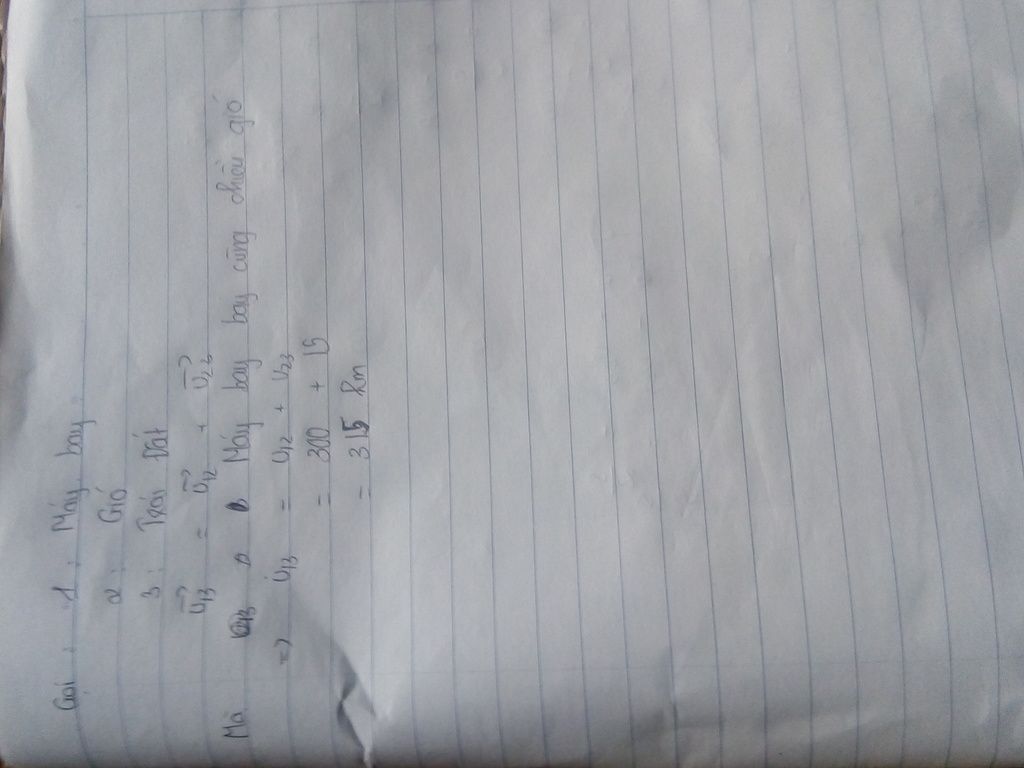 Gọi : 1 : Máy bay
2 : Gió
3 : Trái Đất
v₁₃ = v₁₂ + v₂₃
Mà Máy bay bay cùng chiều gió
=> v₁₃ = v₁₂ + v₂₃
= 300 + 15
= 315 km